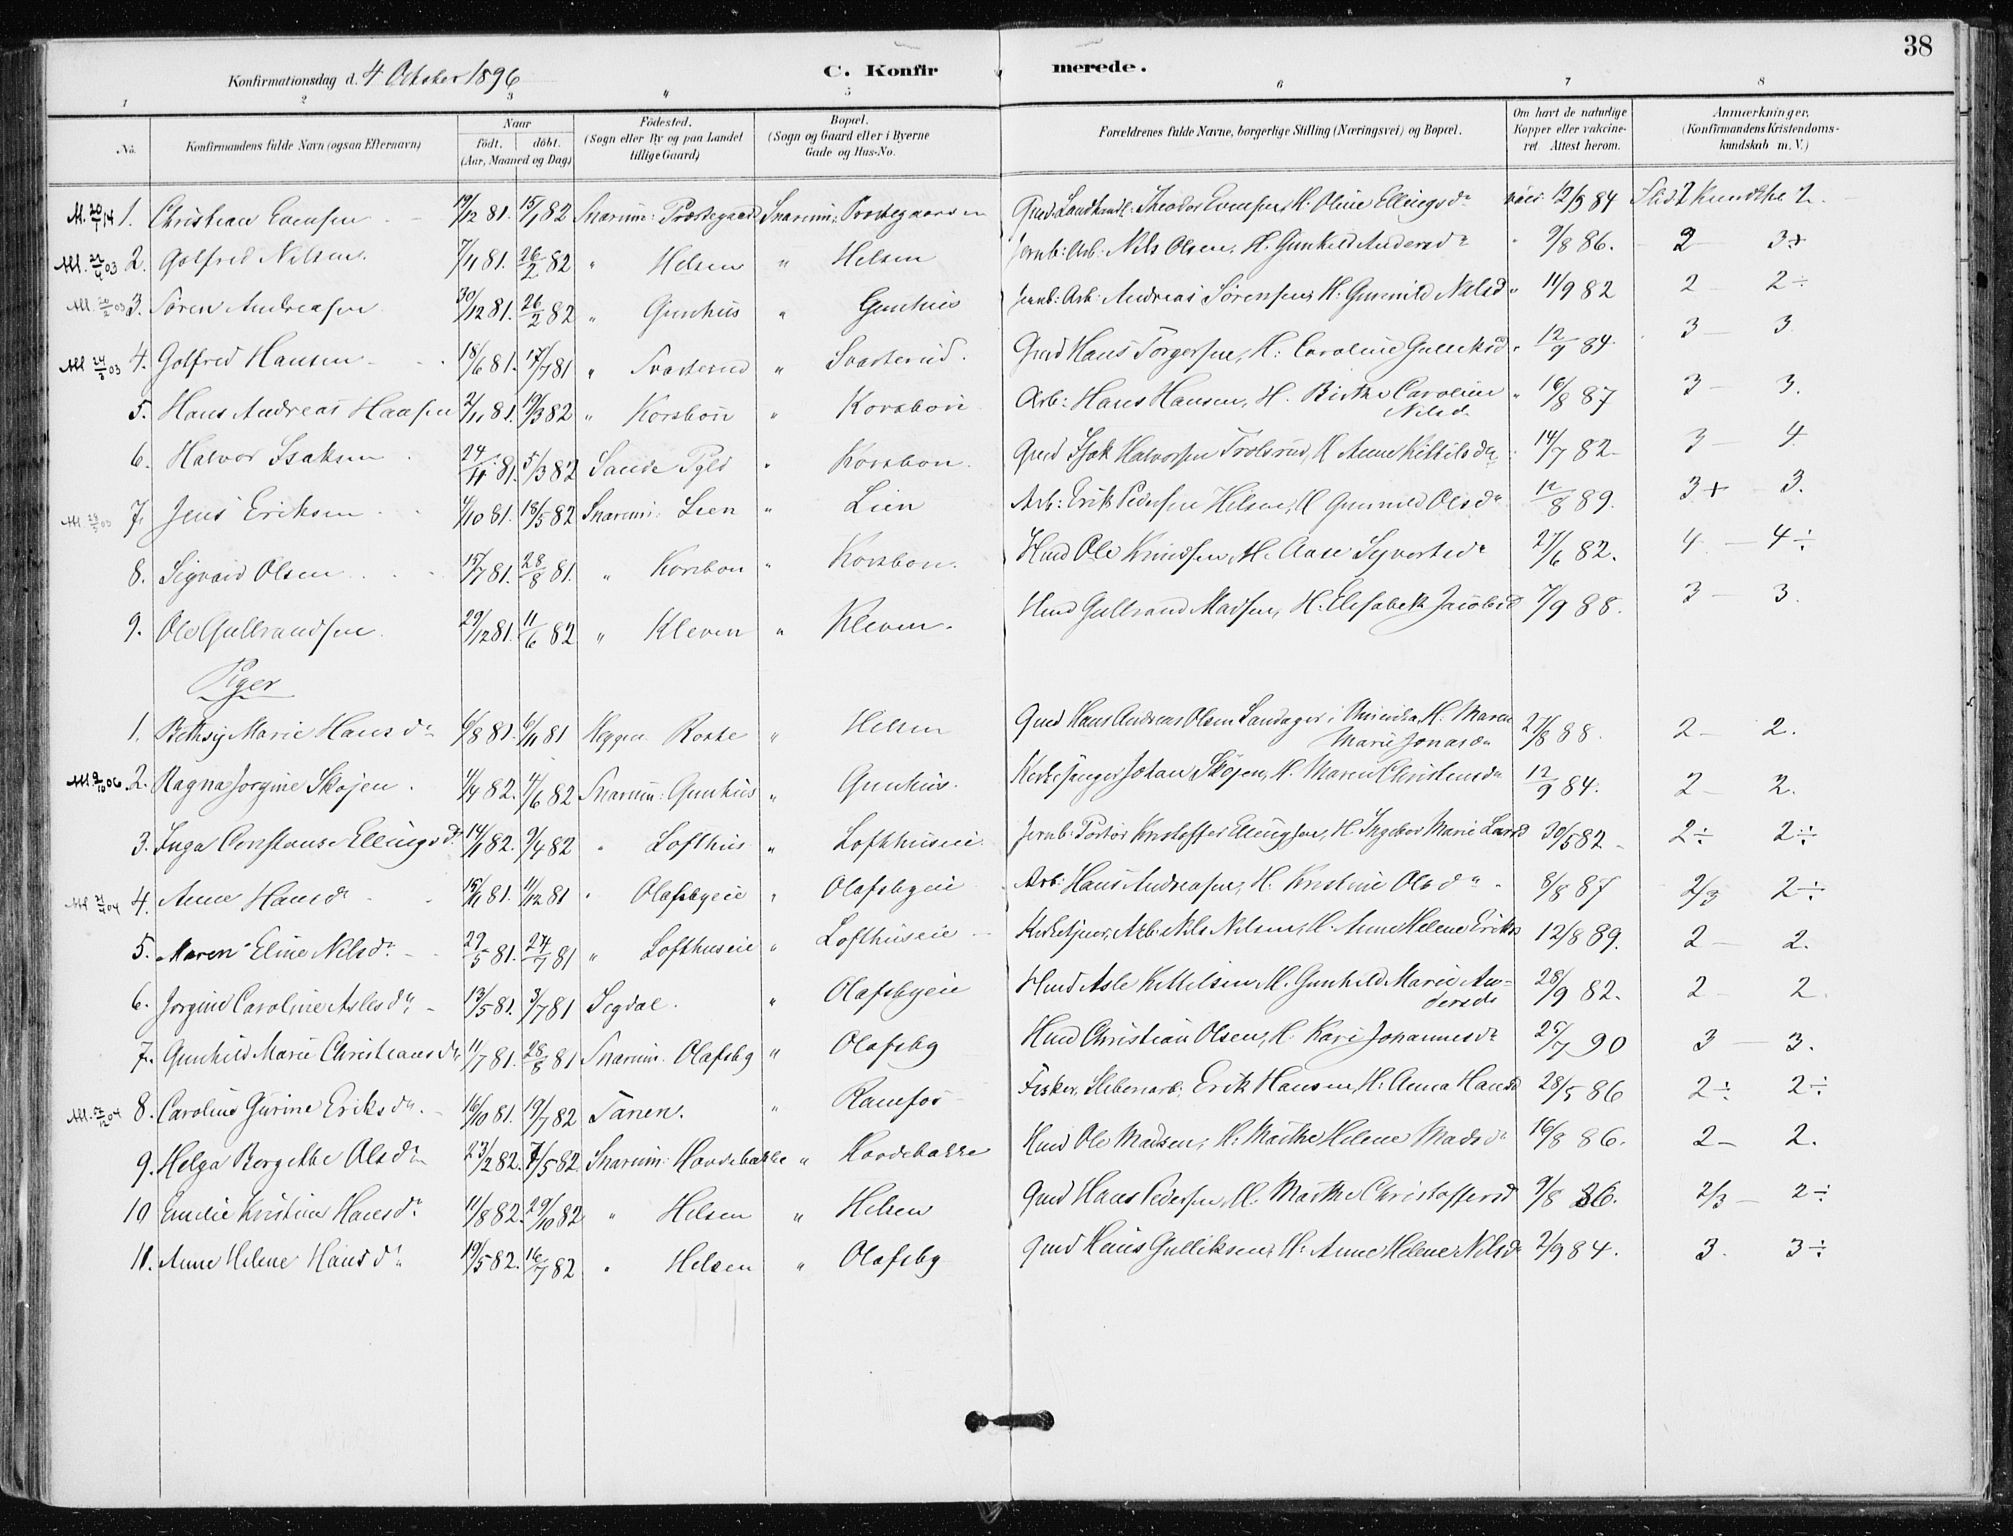 38
Konfirmationsdag d. 4 October 1896
C. Konfirmerede.
1 2 3 4 5 6 7 8
No. Konfirmandens fulde Navn (ogsaa Efternavn) Naar födt. döbt. (Aar, Maaned og Dag) Födested. (Sogn eller By og paa Landet tillige Gaard) Bopæl. (Sogn og Gaard eller i Byerne Gade og Hus-No. Forældrenes fulde Navne, borgerlige Stilling (Næringsvei) og Bopæl. Om havt de naturlige Kopper eller vakcineret. Attest herom. Anmærkninger. (Konfirmandens Kristendomskundskab m. V.)
1. Christian Evensen 19/12 81. 15/1 82 Snarum: Præstegaard Snarum: Gmd. Landhandl: Theodor Evensen, H. Oline Ellingsdr 12/9 84 Flid 2 Kundsk. 2.
2. Golfred Nilsen 7/11 81. 26/2 82 " Helsen " Helsen Jernb: Arb: Nils Olsen, H. Gunhild Andersdr " 9/8 86. 2 3+
3. Søren Andreasen 30/12 81. 26/2 82 " Gunhus " Gunhus Jernb: Arb: Andreas Sørensen, H: Gunnild Nilsd " 11/9 82 2 - 2÷
4. Golfred Hansen 18/6 81. 17/7 81 " Svarterud " Svarterud. Gmd Hans Torgersen, H: Caroline Gulliksd " 12/9 84. 3 - 3
5. Hans Andreas Hansen 2/11 81. 19/3 82 " Korsbøn " Korsbøn Arb: Hans Hansen, H. Birthe Caroline Nilsd. " 16/8 87 3 - 3.
6. Halvor Isaksen 24/11 81. 5/3 82 Sande " Korsbøn. Gmd Isak Halvorsen H. Anne Kittilsdr 14/7 82 3 - 4
7. Jens Eriksen 4/10 81. 18/5 82 Snarum: Lien " Lien Arb: Erik Pedersen Helsen, H. Gunnild Olsdr 12/8 89. 3+ 3.
8. Sigvard Olsen 15/7 81. 28/8 81. " Korsbøn " Korsbøn. Hmd Ole Knudsen, H. Aase Syvertsdr 27/6 82. 4 - 4÷
9. Ole Gulbrandsen 29/12 81. 11/6 82 " Kleven " Kleven. Hmd Gulbrand Madsen, H. Elisabeth Jacobsd 7/9 88. 3 - 3.
Piger
1. Bethsy Marie Hansdr 6/8 81. 6/11 81 Heggen Roste " Helsen Gmd Hans Andreas Olsen Landager i H. Maren Marie Jonasdr 27/8 88. 2 - 2.
2. Ragna Jorgine Skøjen. 4/4 82. 4/6 82 Snarum: Gunhus " Gunhus. Kirkesanger Johan Skøjen, H. Maren Christensdr 12/9 84. 2 - 2.
3. Inga Constanse Ellingsdr 14/1 82. 9/4 82 " Lofthus " Lofthuseie. Jernb: Portør Kristoffer Ellingsen, H. Ingebor Marie Larsd 30/5 82 2÷ 2÷
4. Anne Hansdr 15/11 81. 11/12 81 " Olafsbyeie " Olafsbyeie Arb: Hans Andreasen, H. Kristine Olsdr 8/8 87 2/3 2÷
5. Maren Eline Nilsdr 29/5 81. 24/7 81 " Lofthuseie " Lofthuseie Kirketjener, Arb: Nils Nilsen, H. Anne Helene Eriksd 12/8 89. 2 - 2.
6. Jorgine Caroline Aslesdr 13/5 81. 3/7 81 Sigdal. " Olafsbyeie Hmd Asle Kittelsen, H. Gunhild Marie Andersdr 28/9 82. 2 - 2.
7. Gunhild Marie Christiansdr 11/7 81. 28/8 81 Snarum. Olafsby " Olafsby Hmd Christian Olsen, H. Kari Johannesdr 25/7 90 3 - 3.
8. Caroline Gurine Eriksdr. 16/10 81. 19/7 82 Tanen. " Ramfos Fisker, Slibenarb: Erik Hansen, H. Anna Hansd 28/5 86 2÷ 2÷
9. Helga Bergethe Olsdr 23/2 82. 7/5 82 Snarum: Hovdebakke " Hovdebakke Hmd Ole Madsen, H. Marthe Helene Madsdr 16/8 86. 2 - 2.
10 Emilie Kristine Hansdr 11/8 82. 29/10 82 " Helsen " Helsen Gmd Hans Pedersen, H. Marthe Christoffersd 9/8 86. 2/3 - 2÷
11. Anne Helene Hansdr 19/5 82. 16/7 82 " Helsen " Olafsby Gmd Hans Gulliksen, H. Anne Helene Nilsdr 2/9 84. 3. 3÷